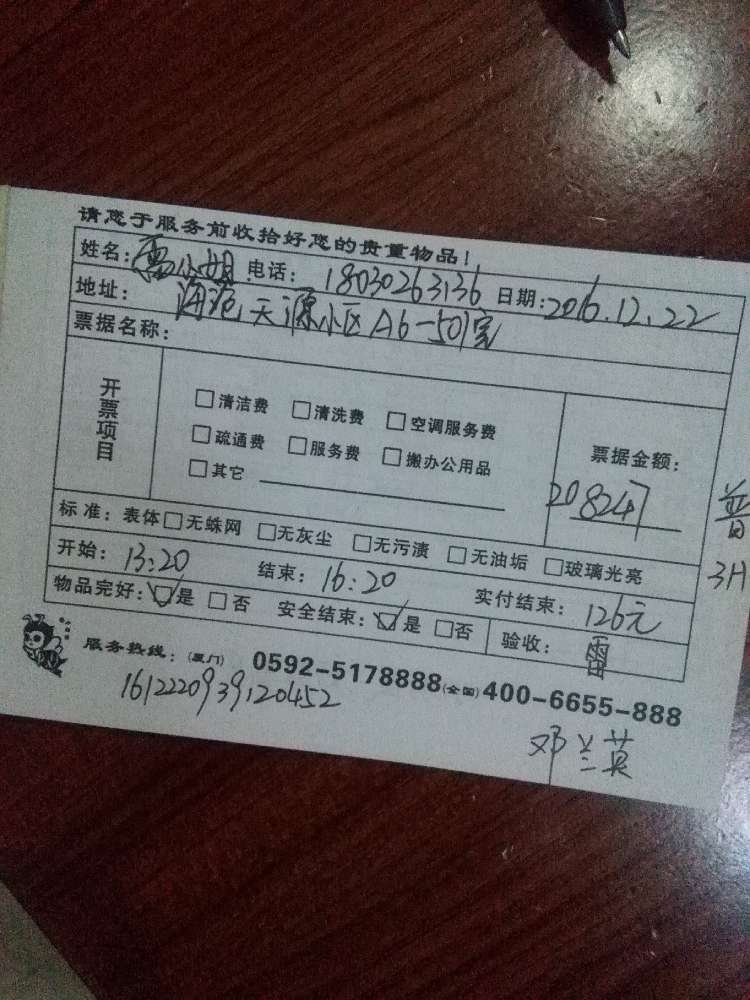 请您于服务前收拾好您的贵重物品！
姓名：雷小姐 电话：18030263136 日期：2016.12.22
地址：海沧天源小区A6-501室
票据名称：
开票项目
□清洁费 □清洗费 □空调服务费
□疏通费 □服务费 □搬办公用品
□其它
票据金额：
208247
普
3H
标准：表体□无蛛网 □无灰尘 □无污渍 □无油垢 □玻璃光亮
开始：13:20 结束：16:20 实付结束：126元
物品完好：☑是 □否 安全结束：☑是 □否 验收：雷
服务热线：(厦门) 0592-5178888 (全国) 400-6655-888
1612220939120452
邓兰英